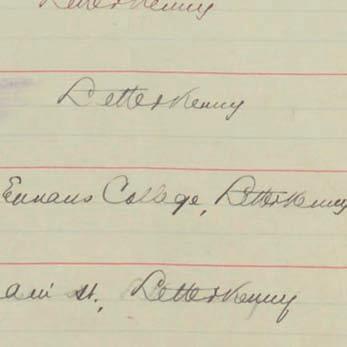 Letterkenny
Letterkenny
Eunans College, Letterkenny
ain St, Letterkenny